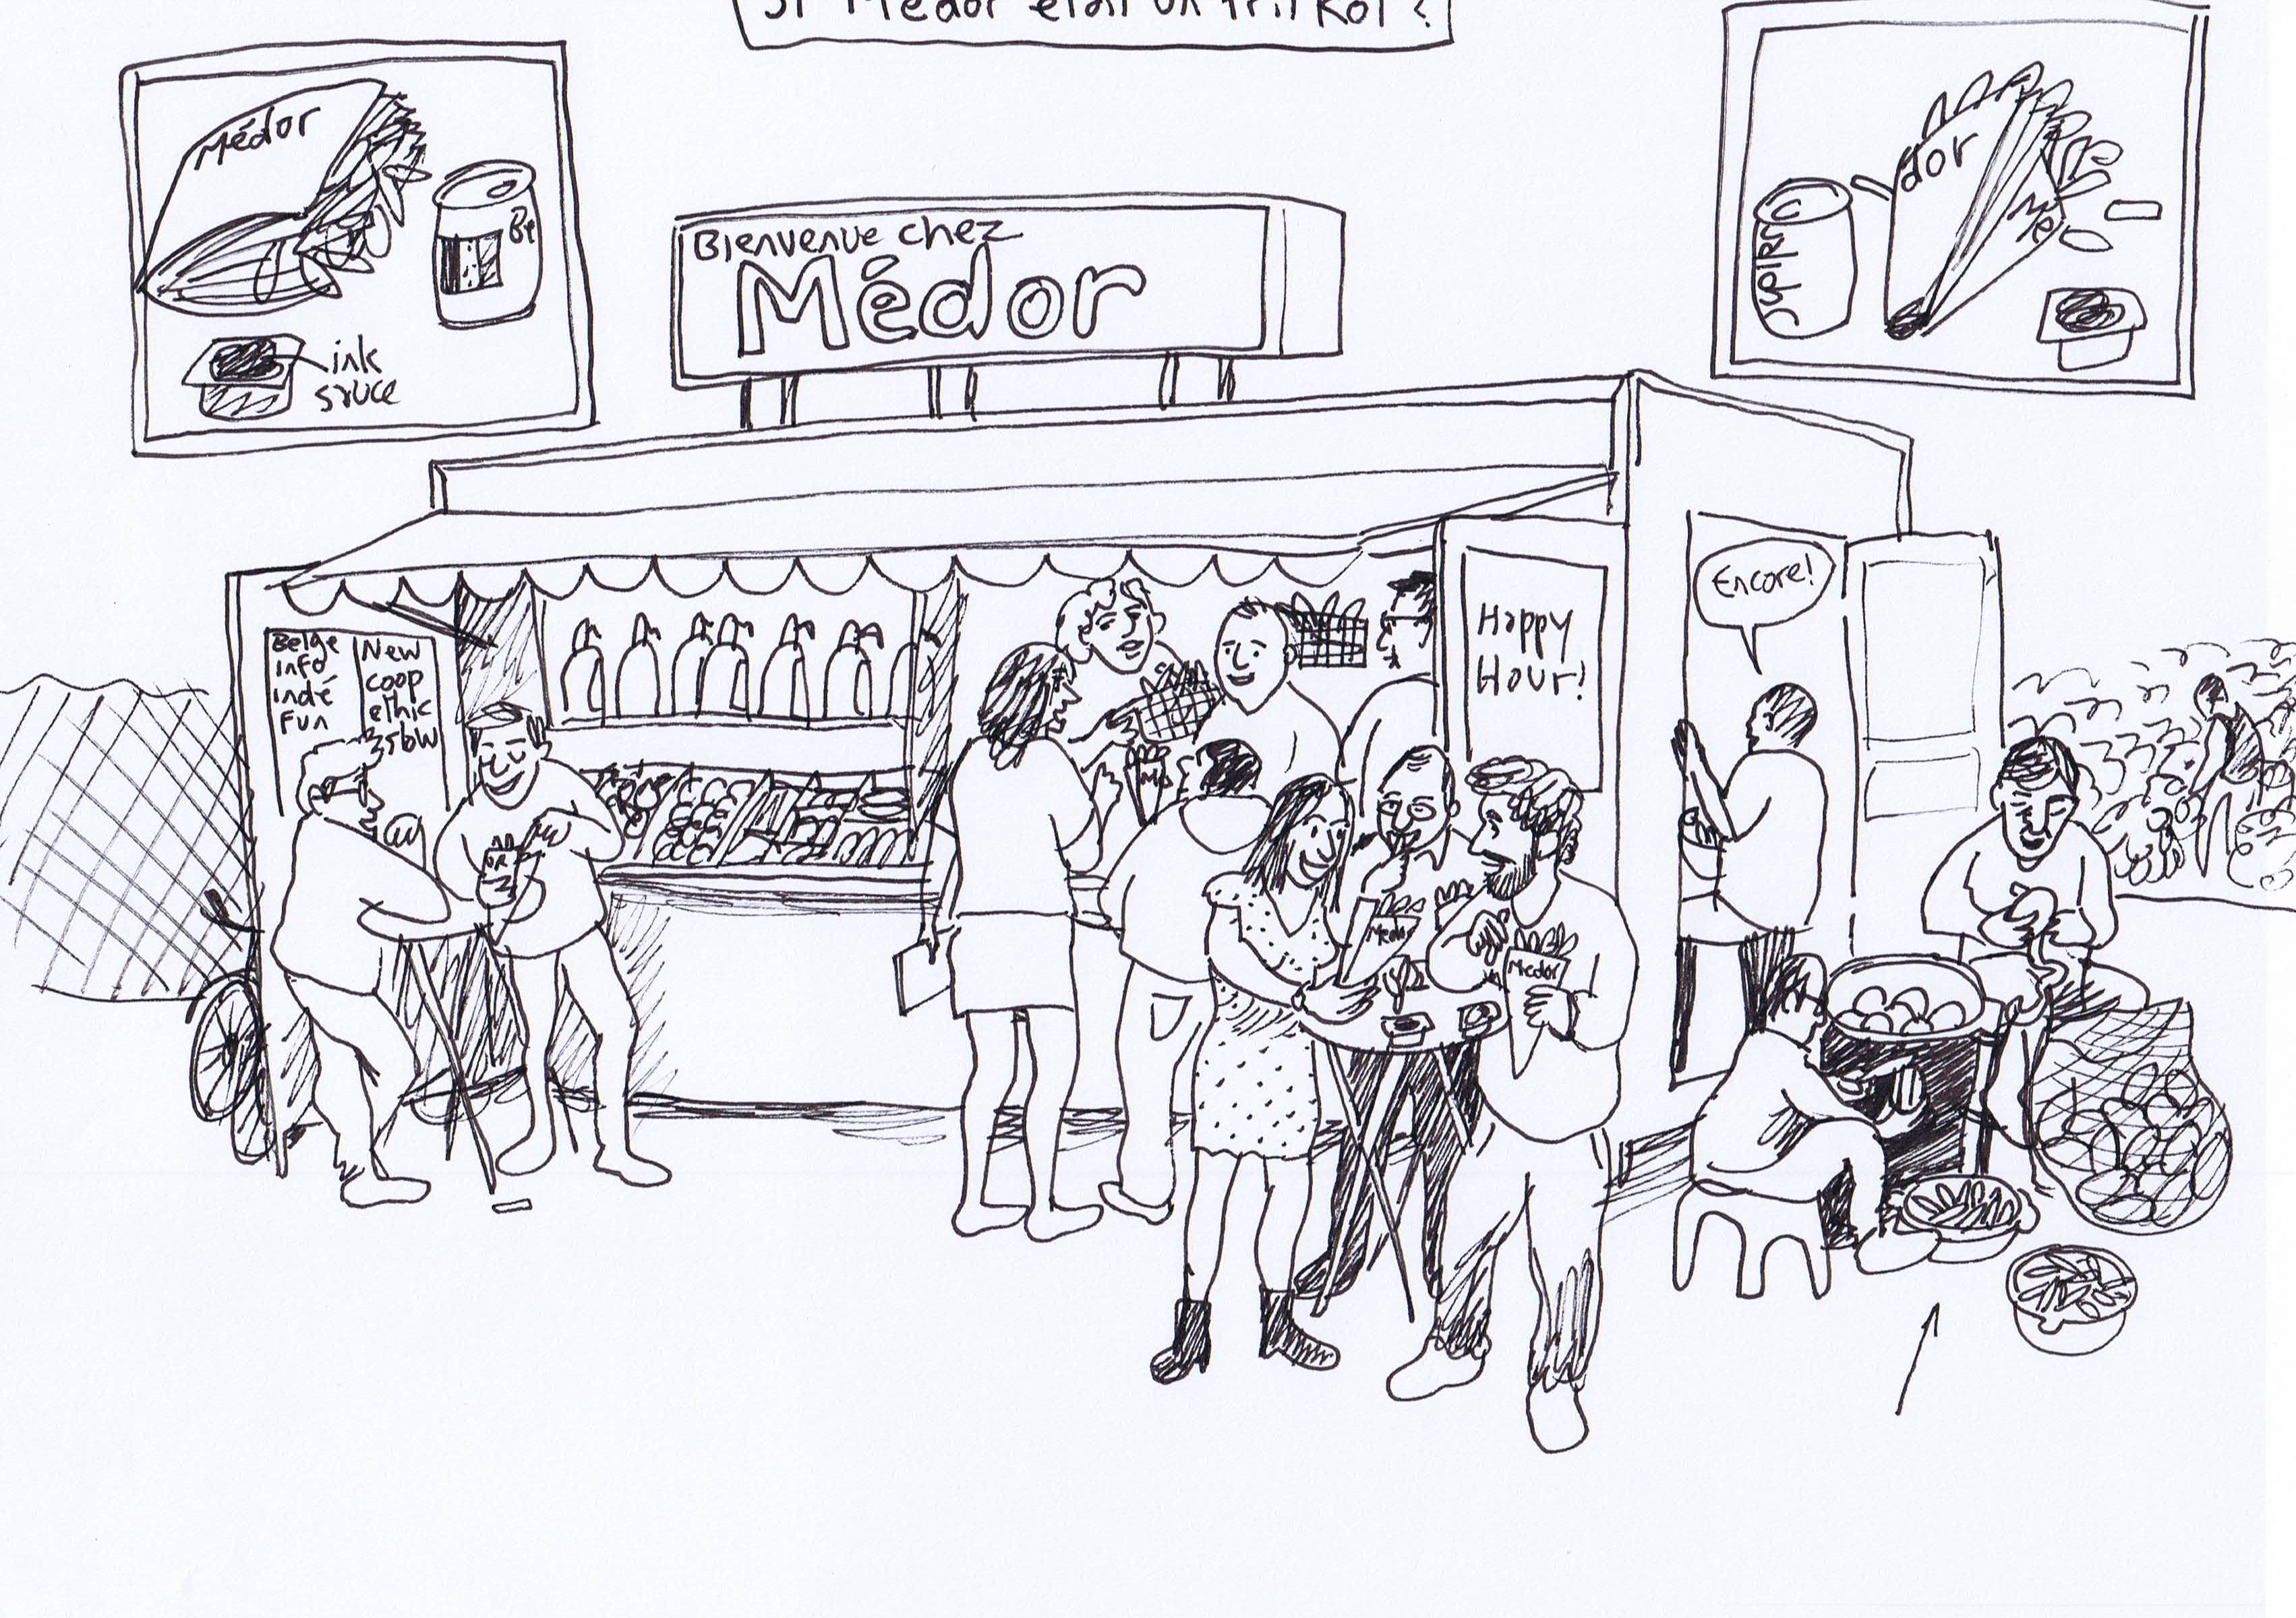 Si Médor était un frit kot ?
Médor
Be
ink
sauce
Bienvenue chez
Médor
JUPILER
dor
Mé
Belge
info
indé
Fun
New
coop
ethic
asbl
Happy
Hour!
Encore!
Mé
DOR
Medor
Medor